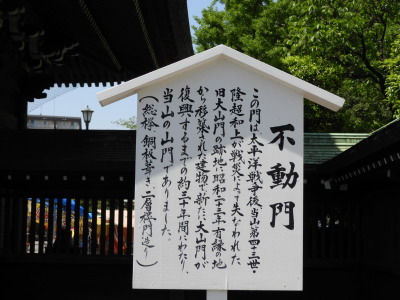 不動門
この門は太平洋戦争後当山第四十三世・
隆超和上が戦災によって失なわれた
旧大山門の跡地に昭和二十三年有縁の地
から移築された建物で新たに大山門が
復興するまでの約三十年間にわたり、
当山の山門でありました。
(総欅、銅板葺き、二層楼門造り)